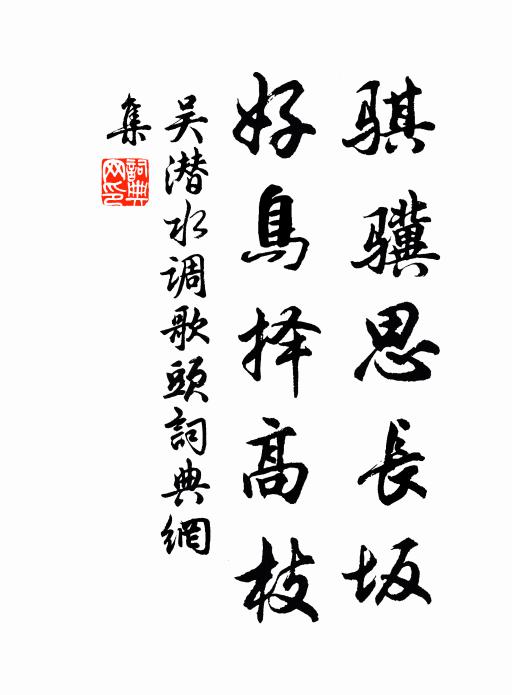 骐骥思長坂
好鳥择高枝
吴潜水调歌頭詞典網
集
詞典网印